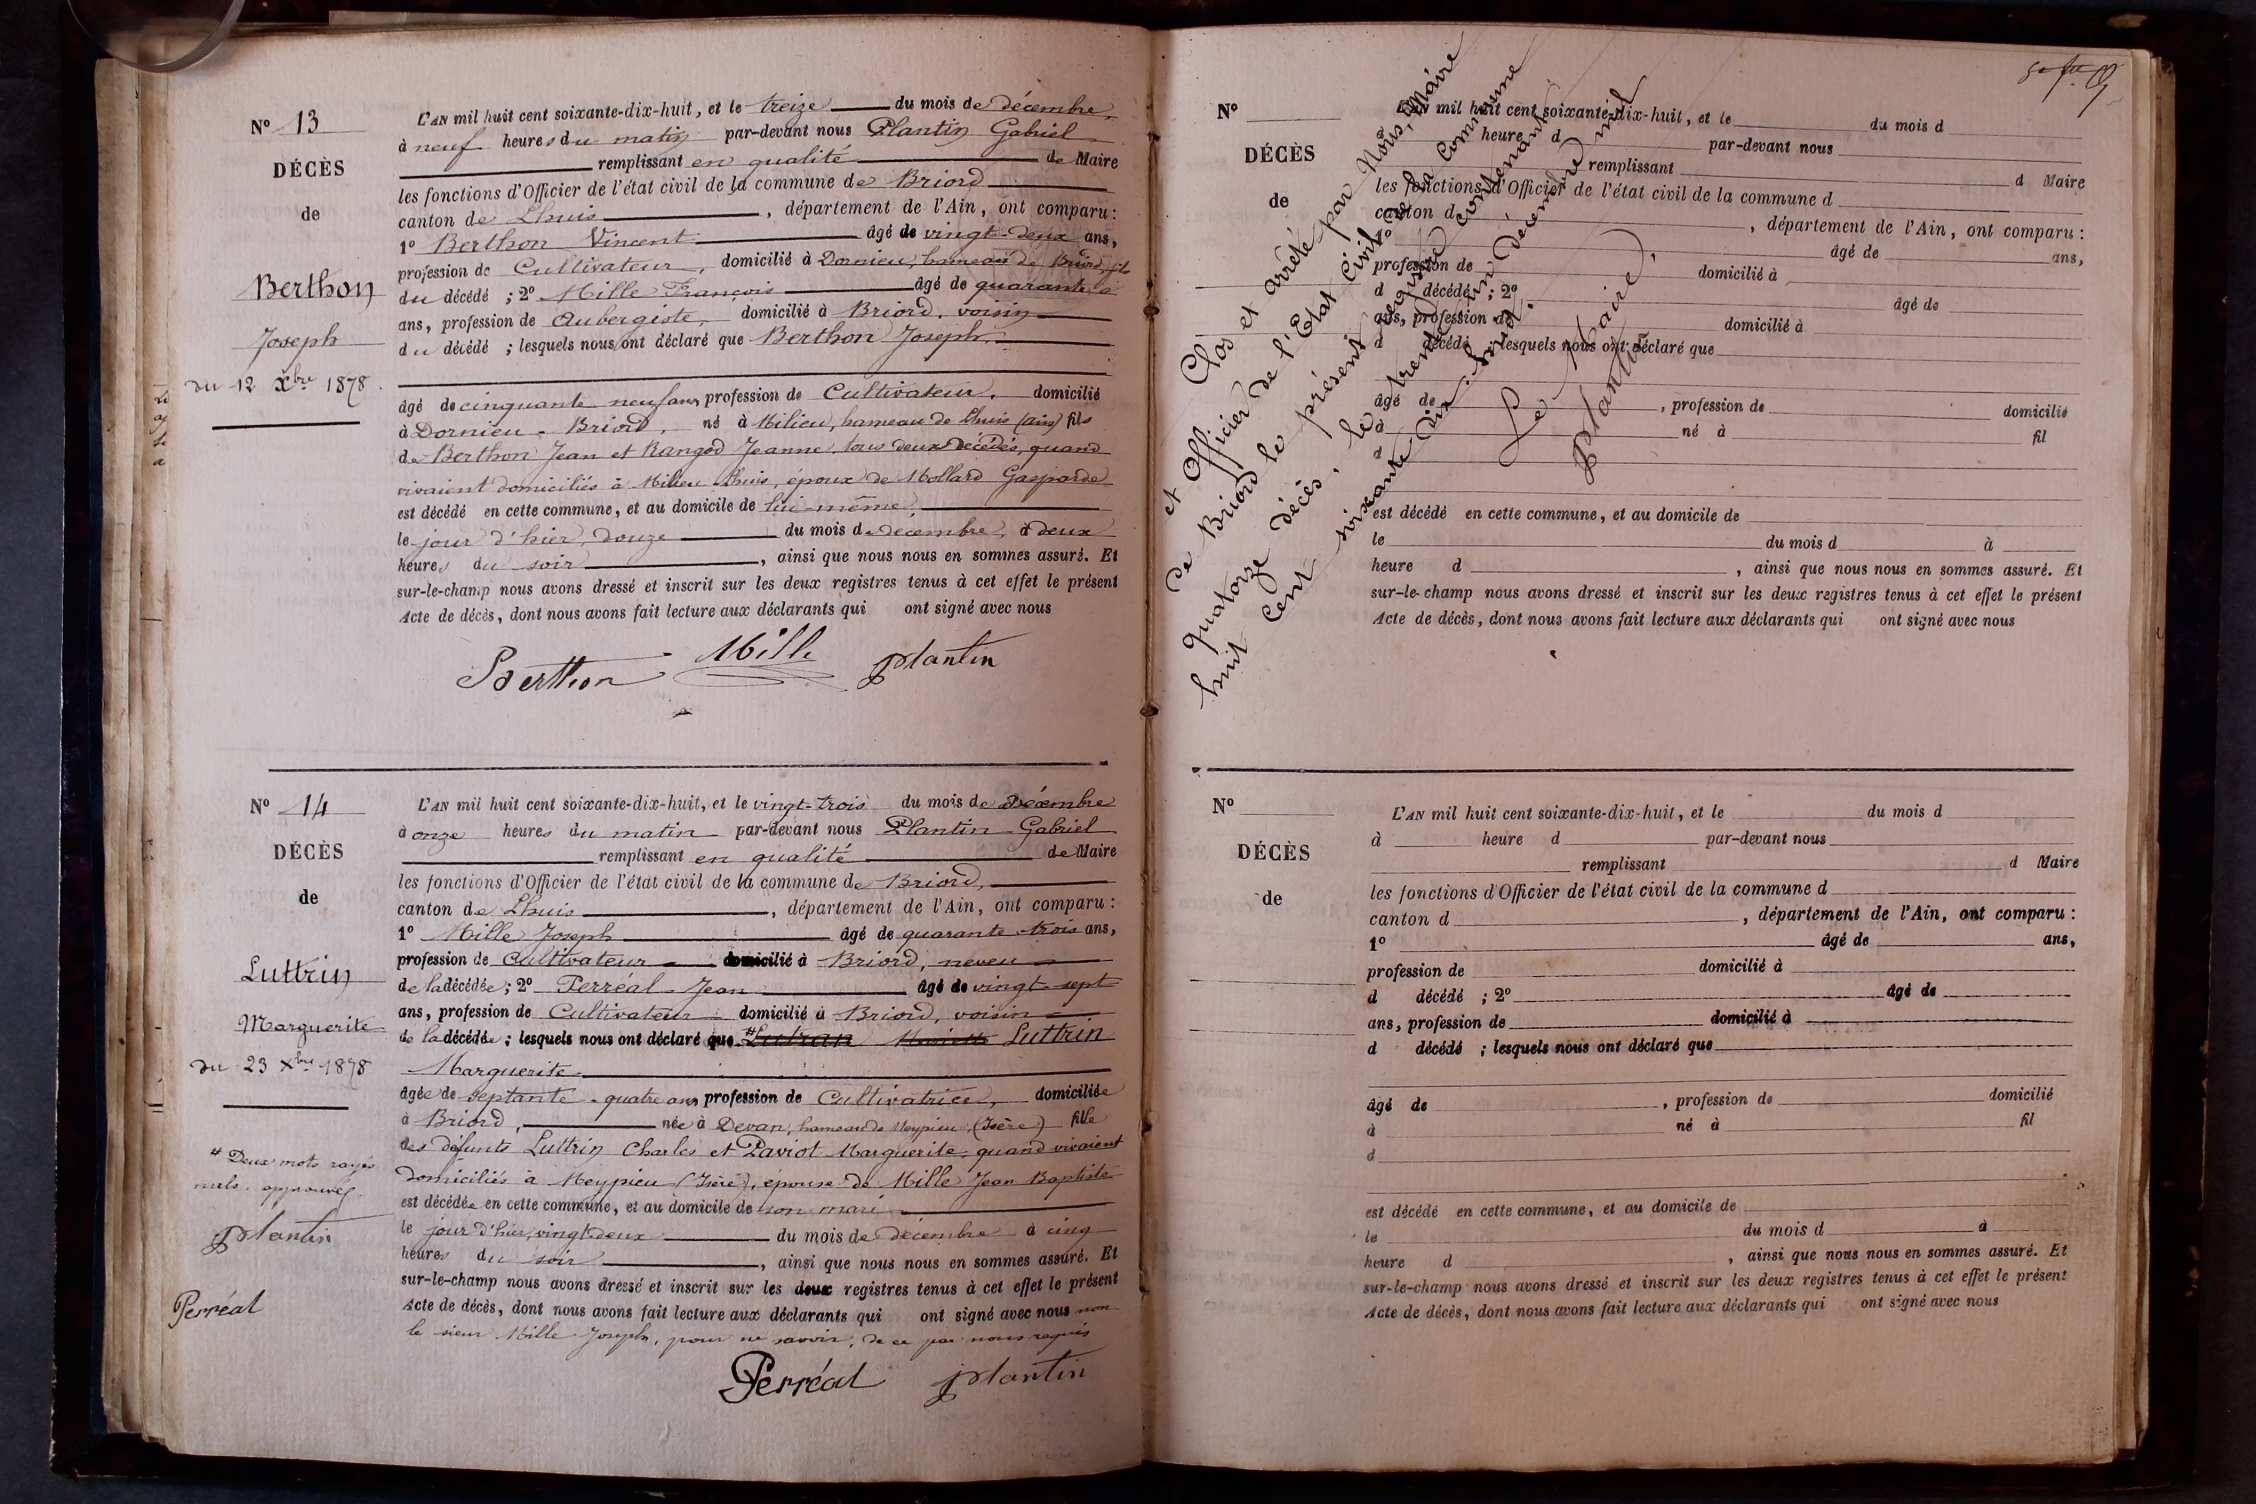 Nº 13
DÉCÈS
de
Berthon
Joseph
du 12 Xbre 1878.
L'AN mil huit cent soixante-dix-huit, et le treize du mois de décembre,
à neuf heures du matin par-devant nous Plantin Gabriel
remplissant en qualité de Maire
les fonctions d'Officier de l'état civil de la commune de Briord
canton de Lhuis, département de l'Ain, ont comparu :
1º Berthon Vincent âgé de vingt-deux ans,
profession de Cultivateur, domicilié à Dornieu, hameau de Briord, fils
du décédé ; 2º Mille François âgé de quarante
ans, profession de Aubergiste, domicilié à Briord, voisin
du décédé ; lesquels nous ont déclaré que Berthon Joseph
âgé de cinquante neuf ans, profession de Cultivateur, domicilié
à Dornieu - Briord, né à Milieu, hameau de Lhuis (Ain) fils
de Berthon Jean et Rangod Jeanne, tous deux décédés, quand
vivaient domiciliés à Milieu Lhuis, époux de Mollard Gasparde
est décédé en cette commune, et au domicile de lui-même,
le jour d'hier, douze du mois de décembre, à deux
heures du soir, ainsi que nous nous en sommes assuré. Et
sur-le-champ nous avons dressé et inscrit sur les deux registres tenus à cet effet le présent
Acte de décès, dont nous avons fait lecture aux déclarants qui ont signé avec nous
Berthon Mille Plantin
Nº 14
DÉCÈS
de
Luttrin
Marguerite
du 23 Xbre 1878
# Deux mots rayés
nuls. approuvés.
Plantin
Perréal
L'AN mil huit cent soixante-dix-huit, et le vingt-trois du mois de Décembre
à onze heures du matin par-devant nous Plantin Gabriel
remplissant en qualité de Maire
les fonctions d'Officier de l'état civil de la commune de Briord,
canton de Lhuis, département de l'Ain, ont comparu :
1º Mille Joseph âgé de quarante-trois ans,
profession de Cultivateur domicilié à Briord, neveu
de la décédée ; 2º Perréal Jean âgé de vingt-sept
ans, profession de Cultivateur domicilié à Briord, voisin
de la décédée ; lesquels nous ont déclaré que # Lutran Luttrin
Marguerite
âgée de septante-quatre ans, profession de Cultivatrice, domiciliée
à Briord, née à Devan, hameau de Meypieu, (Isère) fille
des défunts Luttrin Charles et Paviot Marguerite, quand vivaient
domiciliés à Meypieu (Isère), épouse de Mille Jean Baptiste
est décédée en cette commune, et au domicile de son mari
le jour d'hier, vingt-deux du mois de décembre à cinq
heures du soir, ainsi que nous nous en sommes assuré. Et
sur-le-champ nous avons dressé et inscrit sur les deux registres tenus à cet effet le présent
Acte de décès, dont nous avons fait lecture aux déclarants qui ont signé avec nous non
le sieur Mille Joseph, pour ne savoir, de ce par nous requis
Perréal Plantin
Nº
DÉCÈS
de
L'AN mil huit cent soixante-dix-huit, et le du mois d
à heure d par-devant nous
remplissant d Maire
les fonctions d'Officier de l'état civil de la commune d
canton d, département de l'Ain, ont comparu :
1º âgé de ans,
profession de domicilié à
d décédé ; 2º âgé de
ans, profession de domicilié à
d décédé ; lesquels nous ont déclaré que
âgé de, profession de domicilié
à né à fil
d
est décédé en cette commune, et au domicile de
le du mois d à
heure d, ainsi que nous nous en sommes assuré. Et
sur-le-champ nous avons dressé et inscrit sur les deux registres tenus à cet effet le présent
Acte de décès, dont nous avons fait lecture aux déclarants qui ont signé avec nous
Clos et arrêté par Nous, Maire
et Officier de l'État Civil de la commune
de Briord le présent registre contenant
quatorze décès, le trente un décembre mil
huit cent soixante dix-huit.
Le Maire,
Plantin
Nº
DÉCÈS
de
L'AN mil huit cent soixante-dix-huit, et le du mois d
à heure d par-devant nous
remplissant d Maire
les fonctions d'Officier de l'état civil de la commune d
canton d, département de l'Ain, ont comparu :
1º âgé de ans,
profession de domicilié à
d décédé ; 2º âgé de
ans, profession de domicilié à
d décédé ; lesquels nous ont déclaré que
âgé de, profession de domicilié
à né à fil
d
est décédé en cette commune, et au domicile de
le du mois d à
heure d, ainsi que nous nous en sommes assuré. Et
sur-le-champ nous avons dressé et inscrit sur les deux registres tenus à cet effet le présent
Acte de décès, dont nous avons fait lecture aux déclarants qui ont signé avec nous